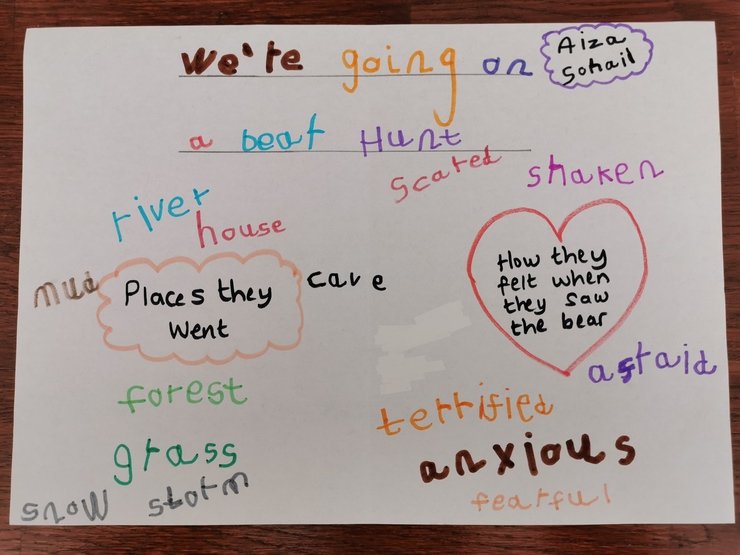 We're going on
Aiza
Sohail
a bear Hunt
scared
shaken
river
house
mud
Places they
went
cave
How they
felt when
they saw
the bear
afraid
forest
terrified
grass
anxious
snow
storm
fearful